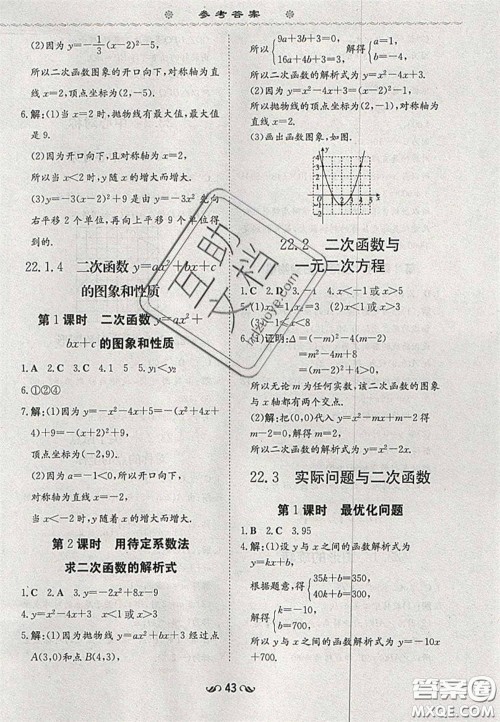 参考答案
(2)因为 y=-1/3(x-2)²-5,
所以二次函数图象的开口向下,对称轴为
直线 x=2,顶点坐标为(2,-5).
6.解:(1)当 x=2 时,抛物线有最大值,最大值
是 9.
(2)因为开口向下,且对称轴为 x=2,
所以当 x<2 时,y 随 x 的增大而增大.
(3)y=-3(x-2)²+9 可由 y=-3x² 先向
右平移 2 个单位,再向上平移 9 个单位得
到的.
22.1.4 二次函数 y=ax²+bx+c
的图象和性质
第 1 课时 二次函数 y=ax²+
bx+c 的图象和性质
1.D 2.C 3.C 4.1 5 5.y₁<y₂
6.①②④
7.解:(1)因为 y=-x²-4x+5=-(x²+4x)
+5=-(x+2)²+9,
顶点坐标为(-2,9).
(2)因为 y=-x²-4x+5=-(x²+4x)+5
=-(x+2)²+9,
顶点坐标为(-2,9),所以开口向下,
所以当 x>-2 时,y 随 x 的增大而减小.
第 2 课时 用待定系数法
求二次函数的解析式
1.C 2.A 3.y=-2x²+8x-9
4.y=x²-4x+3 x<1 或 x>3
5.解:(1)因为抛物线 y=ax²+bx+3 经过点
A(3,0)和点 B(4,3),
所以{9a+3b+3=0, 16a+4b+3=3, 解得{a=1, b=-4.
所以二次函数的解析式为 y=x²-4x+3.
(2)因为 y=x²-4x+3=(x-2)²-1,
所以对称轴为直线 x=2,
顶点坐标为(2,-1).
(3)画出函数图象,如图:
22.2 二次函数与
一元二次方程
1.C 2.D 3.-4 4.x<-1 或 x>5
5.(1)x<-1 或 x>5
(3)-1≤x<8
6.(1)证明:Δ=(-m)²-4(m-2)
=m²-4m+8
=(m-2)²+4>0,
所以无论 m 为任何实数,该二次函数的图象
与 x 轴都有两个交点.
(2)解:把(0,0)代入 y=x²-mx+m-2 得
m-2=0,解得 m=2,
所以二次函数的解析式为 y=x²-2x.
22.3 实际问题与二次函数
第 1 课时 最优化问题
1.B 2.A 3.95
4.解:(1)设 y 与 x 之间的函数解析式为
y=kx+b,
根据题意,得{35k+b=350, 40k+b=300,
解得{k=-10, b=700.
所以 y 与 x 之间的函数解析式为 y=-10x
+700.
43
互助文档
hdzhaoye.com
答案圈
MXQE.COM